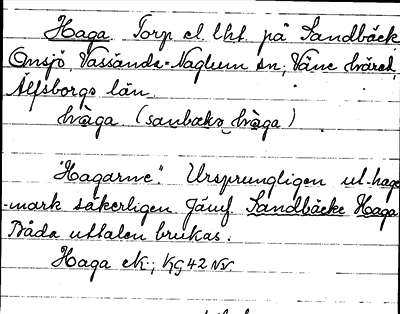 Haga Torp el. lht. på Sandbäck
Onsjö, Vassända-Naglum sn, Väne härad,
Älfsborgs län.
hàga (sanbæks hàga)
"Hagarne". Ursprungligen ut-hage
-mark säkerligen Jämf. Sandbäcke Haga
Båda uttalen brukas.
Haga ek.; KG42